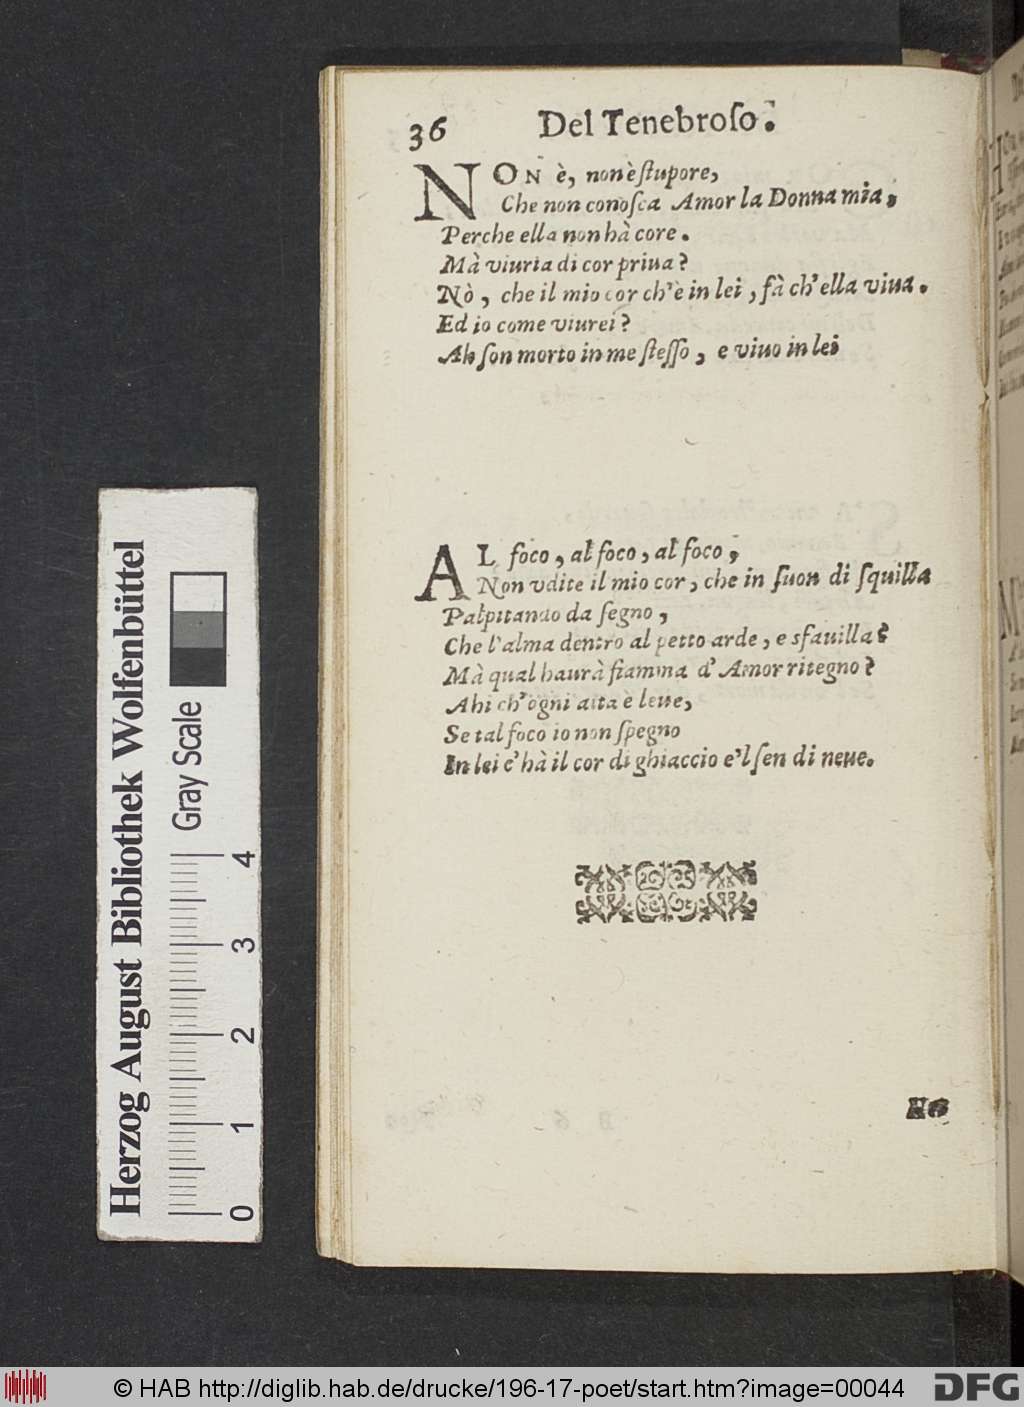 36 Del Tenebroſo.
NON è, non è ſtupore,
Che non conoſca Amor la Donna mia,
Perche ella non hà core.
Mà viuria di cor priua?
Nò, che il mio cor ch'è in lei, fà ch'ella viua.
Ed io come viurei?
Ah ſon morto in me ſteſſo, e viuo in lei
AL foco, al foco, al foco,
Non vdite il mio cor, che in ſuon di ſquilla
Palpitando da ſegno,
Che l'alma dentro al petto arde, e sfauilla?
Mà qual haurà fiamma d'Amor ritegno?
Ahi ch'ogni aita è leue,
Se tal foco io non ſpegno
In lei c'hà il cor di ghiaccio e'l ſen di neue.
Herzog August Bibliothek Wolfenbüttel
Gray Scale
0 1 2 3 4
© HAB http://diglib.hab.de/drucke/196-17-poet/start.htm?image=00044
DFG